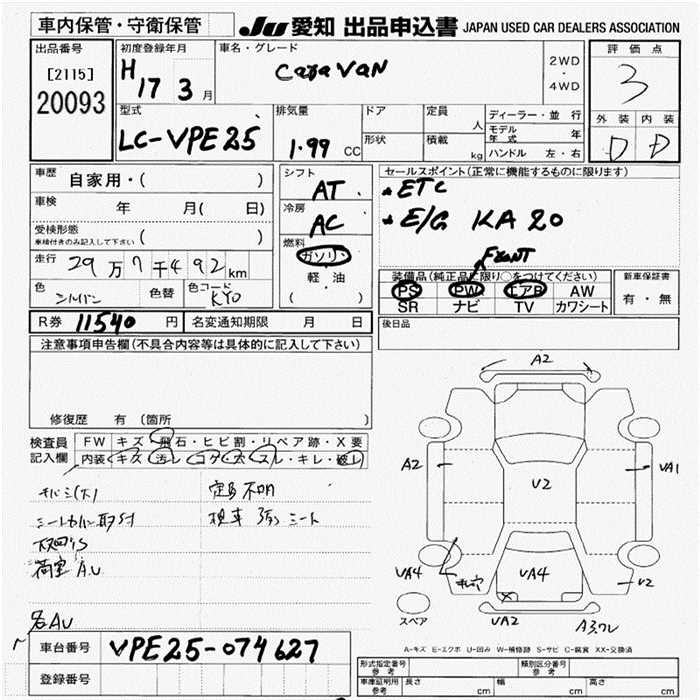 車内保管・守衛保管 JU 愛知 出品申込書 JAPAN USED CAR DEALERS ASSOCIATION
出品番号 初度登録年月 車名・グレード 評価点
[2115] H 17 3 月 CaraVAN 2WD・4WD 3
20093
型式 排気量 ドア 定員 人 ディーラー・並行 外装 内装
LC-VPE25 1.99 CC 形状 積載 kg モデル年式 年 D D
ハンドル 左・右
車歴 自家用・( ) シフト セールスポイント(正常に機能するものに限ります)
AT ETC
車検 年 月( 日) 冷房 E/G KA20
AC
受検形態 車検付きのみ記入して下さい ( ) 燃料 FRONT
ガソリン 装備品(純正品に限り○をつけてください) 新車保証書
走行 29万7千492km 軽・油 PS PW エアB AW 有・無
色 シルバー 色替 色コード KY0 ( ) SR ナビ TV カワシート
R券 11540 円 名変通知期限 月 日 後日品
注意事項申告欄(不具合内容等は具体的に記入して下さい)
修復歴 有(箇所 )
検査員 FW キズ・飛石・ヒビ割・リペア跡・X要
記入欄 内装 キズ 汚レ・コゲ・穴・スレ・キレ・破レ
定員不明
シート
荷室AU
名AU
A2
A2 VA1
V2
VA4 VA4 V2
スペア VA2
A-キズ E-エクボ U-凹み W-補修跡 S-サビ C-腐食 XX-交換済
車台番号 VPE25-074627
登録番号
形式指定番号 参考 類別区分番号 参考
車庫証明用 参考 長さ cm 幅 cm 高さ cm